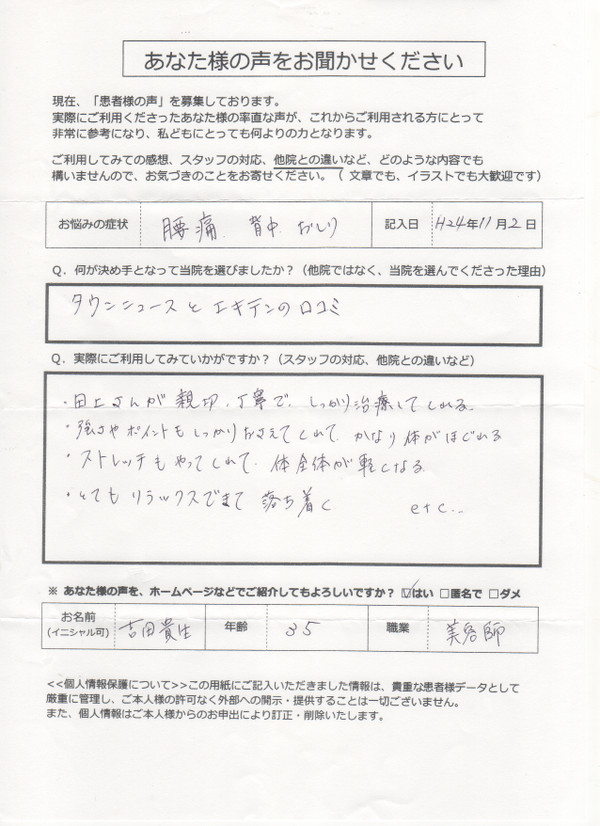 あなた様の声をお聞かせください
現在、「患者様の声」を募集しております。
実際にご利用くださったあなた様の率直な声が、これからご利用される方にとって
非常に参考になり、私どもにとっても何よりの力となります。
ご利用してみての感想、スタッフの対応、他院との違いなど、どのような内容でも
構いませんので、お気づきのことをお寄せください。（ 文章でも、イラストでも大歓迎です）
お悩みの症状 腰痛、背中、おしり 記入日 H24年11月2日
Q．何が決め手となって当院を選びましたか？（他院ではなく、当院を選んでくださった理由）
タウンニュースとエキテンの口コミ
Q．実際にご利用してみていかがですか？（スタッフの対応、他院との違いなど）
・田上さんが親切、丁寧で、しっかり治療してくれる。
・強さやポイントもしっかりおさえてくれて、かなり体がほぐれる
・ストレッチもやってくれて、体全体が軽くなる。
・とてもリラックスできて落ち着く etc...
※ あなた様の声を、ホームページなどでご紹介してもよろしいですか？ ☑はい □匿名で □ダメ
お名前
(イニシャル可) 吉田貴生 年齢 35 職業 美容師
<<個人情報保護について>>この用紙にご記入いただきました情報は、貴重な患者様データとして
厳重に管理し、ご本人様の許可なく外部への開示・提供することは一切ございません。
また、個人情報はご本人様からのお申出により訂正・削除いたします。